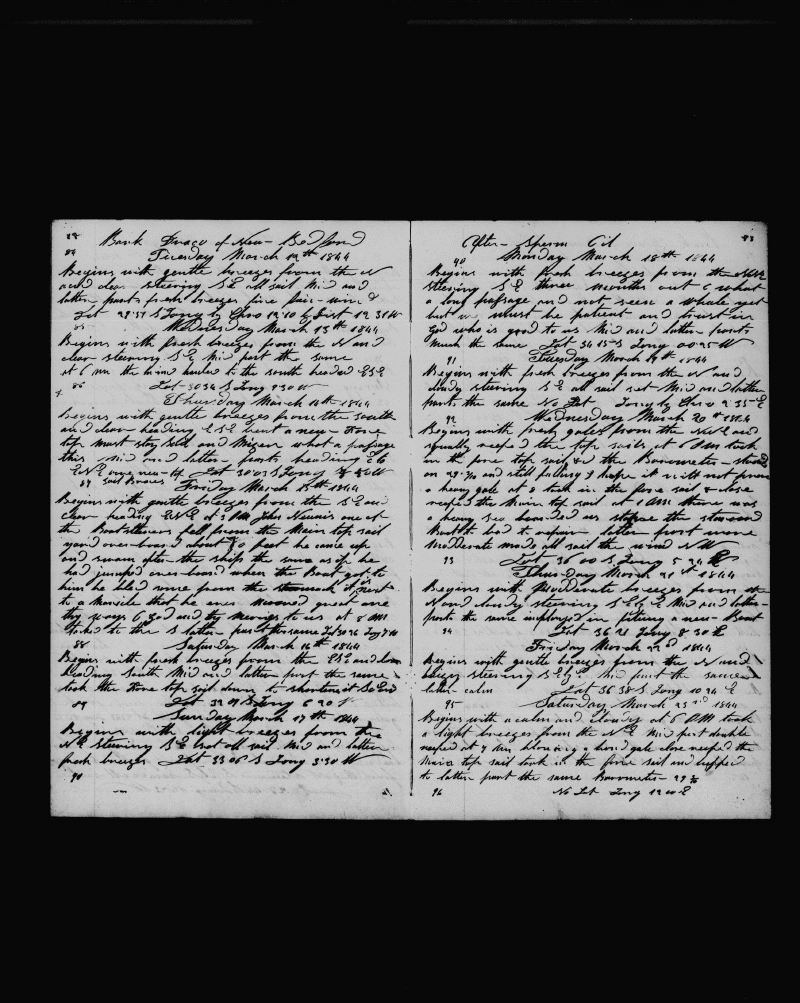 Bark Draco of New-Bedford
84 Tuesday March 12th 1844
Begins with gentle breezes from the N
and clear steering SE all sail Mid and
latter parts fresh breezes fine fair wind
Lat 29.51 S Long by Chro 12.10 by 12.31 W
85 Wednesday March 13th 1844
Begins with fresh breezes from the N and
clear steering SE Mid part the same
at 6 AM the wind hauled to the south headed ESE
86 Lat 30 34 S Long 9 30 W
Thursday March 14th 1844
Begins with gentle breezes from the South
and clear heading ESE bent a new Fore
top mast stay sail and Mizen what a passage
this Mid and latter parts heading E to
ENE Lat 30 03 S Long W
87 Friday March 15th 1844
Begins with gentle breezes from the SE and
clear heading ENE at 3 PM John one of
the Boatsteerers fell from the Main top sail
yard over-board about feet he came up
and swam after the ship the same as if he
had jumped over-board when the Boat got to
him he bled some from the stomach it is not
to a that he ever moved great are
thy ways O God and thy mercys to us at 8 AM
to the S latter part the same Lat 30 26 Long 7
88 Saturday March 16th 1844
Begins with fresh breezes from the ESE and
heading South Mid and latter part the same
took the Fore top sail down to
89 Lat 32 S Long 6 20
Sunday March 17th 1844
Begins with light breezes from the
NE steering SE set all sail Mid and latter
fresh breezes Lat 33 06 S Long 3.30 W
90
After Sperm Oil
90 Monday March 18th 1844
Begins with fresh breezes from the
steering SE three months out O what
a long passage and not seen a whale yet
but we must be patient and trust in
God who is good to us Mid and latter parts
much the same Lat 34 15 S Long 00.25 W
91 Tuesday March 19th 1844
Begins with fresh breezes from the N and
cloudy steering SE all sail set Mid and latter
parts the same No Lat Long by Chro 2.35 E
92 Wednesday March 20th 1844
Begins with fresh gales from the NW and
squally reefed the top sails at 6 AM took
in the fore top sail the Barometer stood
on 29 and still falling I hope it will not prove
a heavy gale at 8 took in the fore sail & close
reefed the Main top sail at 6 AM there was
a heavy sea boarded us stove the starboard
Boat bad to repair latter part more
Modderate made all sail the wind NW
93 Lat 36 00 S Long 5 34 E
Thursday March 21st 1844
Begins with Modderate breezes from the
N and cloudy steering SE by E Mid and latter
parts the same imployed in fiting a new Boat
94 Lat 36 21 Long 8 30 E
Friday March 22nd 1844
Begins with gentle breezes from the N and
steering SE by E Mid part the same
latter calm Lat 36 38 S Long 10 24 E
95 Saturday March 23rd 1844
Begins with a calm and cloudy at 6 PM took
a light breezes from the NE Mid part double
reefed at 4 AM blowing a hard gale close reefed the
Main top sail took in the fore sail and
to latter part the same Barometer 29
96 No Lat Long 12 00 E